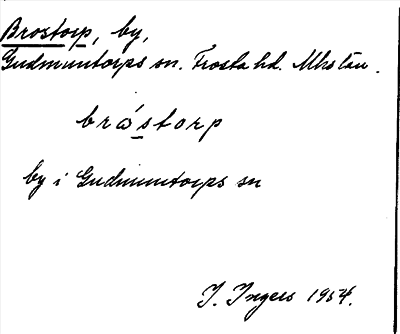 Brostorp, by,
Gudmuntorps sn. Frosta hd. Mhs län.
bra̍storp
by i Gudmuntorps sn
I. Ingers 1954.